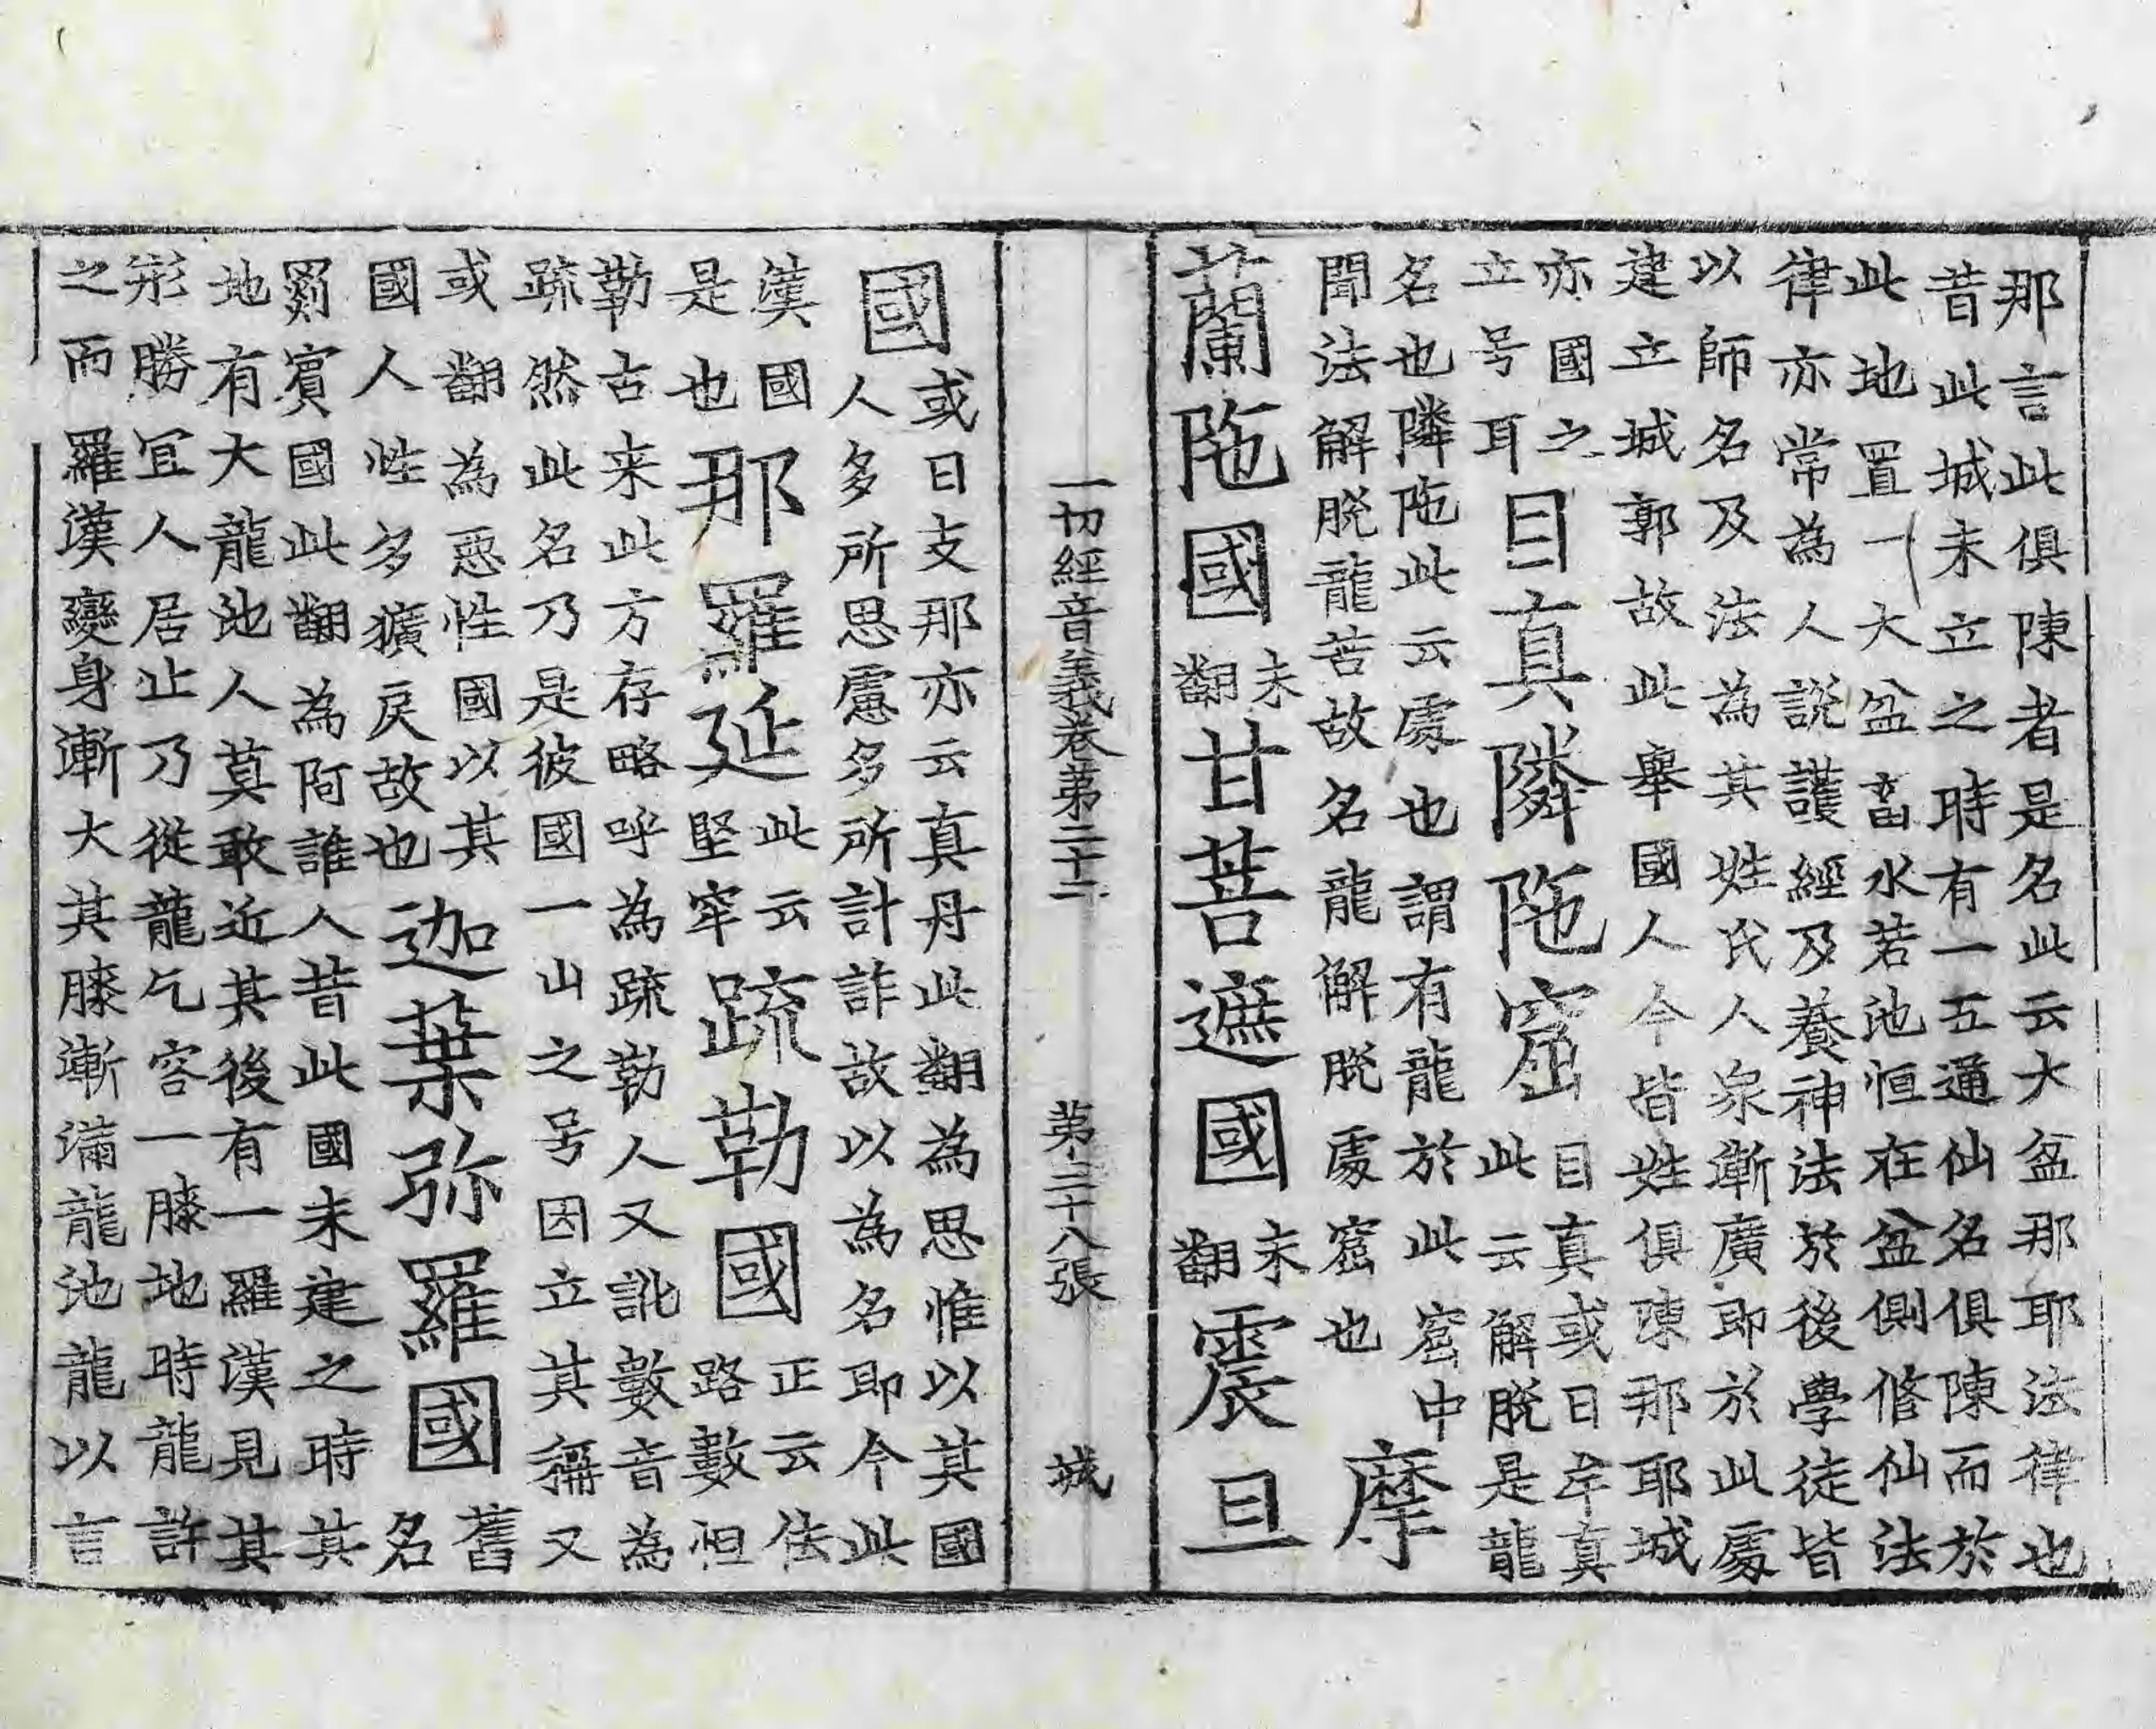 那言此俱陳者是名此云大盆那耶法律也
昔此城未立之時有一五通仙名俱陳而於
此地置一大盆畜水若池恒在盆側修仙法
律亦常為人說護經及養神法於後學徒皆
以師名及法為其姓氏人衆漸廣即於此處
建立城郭故此舉國人今皆姓俱陳那耶城
亦國之
立号耳
目真隣陁窟
目真或曰牟真
此云解脫是龍
名也隣陁此云處也謂有龍於此窟中
聞法解脫龍苦故名龍解脫處窟也
摩
蘭陁國
未
翻
甘菩遮國
未
翻
震旦
一切經音義卷第二十二 第三十八張 城
國
或曰支那亦云真丹此翻為思惟以其國
人多所思慮多所計詐故以為名即今此
漢國
是也
那羅延
此云
堅窂
疏勒國
正云佉
路數怛
勒古来此方存略呼為疏勒人又訛數音為
疏然此名乃是彼國一山之号因立其稱又
或翻為惡性國以其
國人性多獷戾故也
迦葉弥羅國
舊
名
罽賓國此翻為阿誰人昔此國未建之時其
地有大龍池人莫敢近其後有一羅漢見其
形勝宜人居止乃從龍乞容一膝地時龍許
之而羅漢變身漸大其膝漸滿龍池龍以言